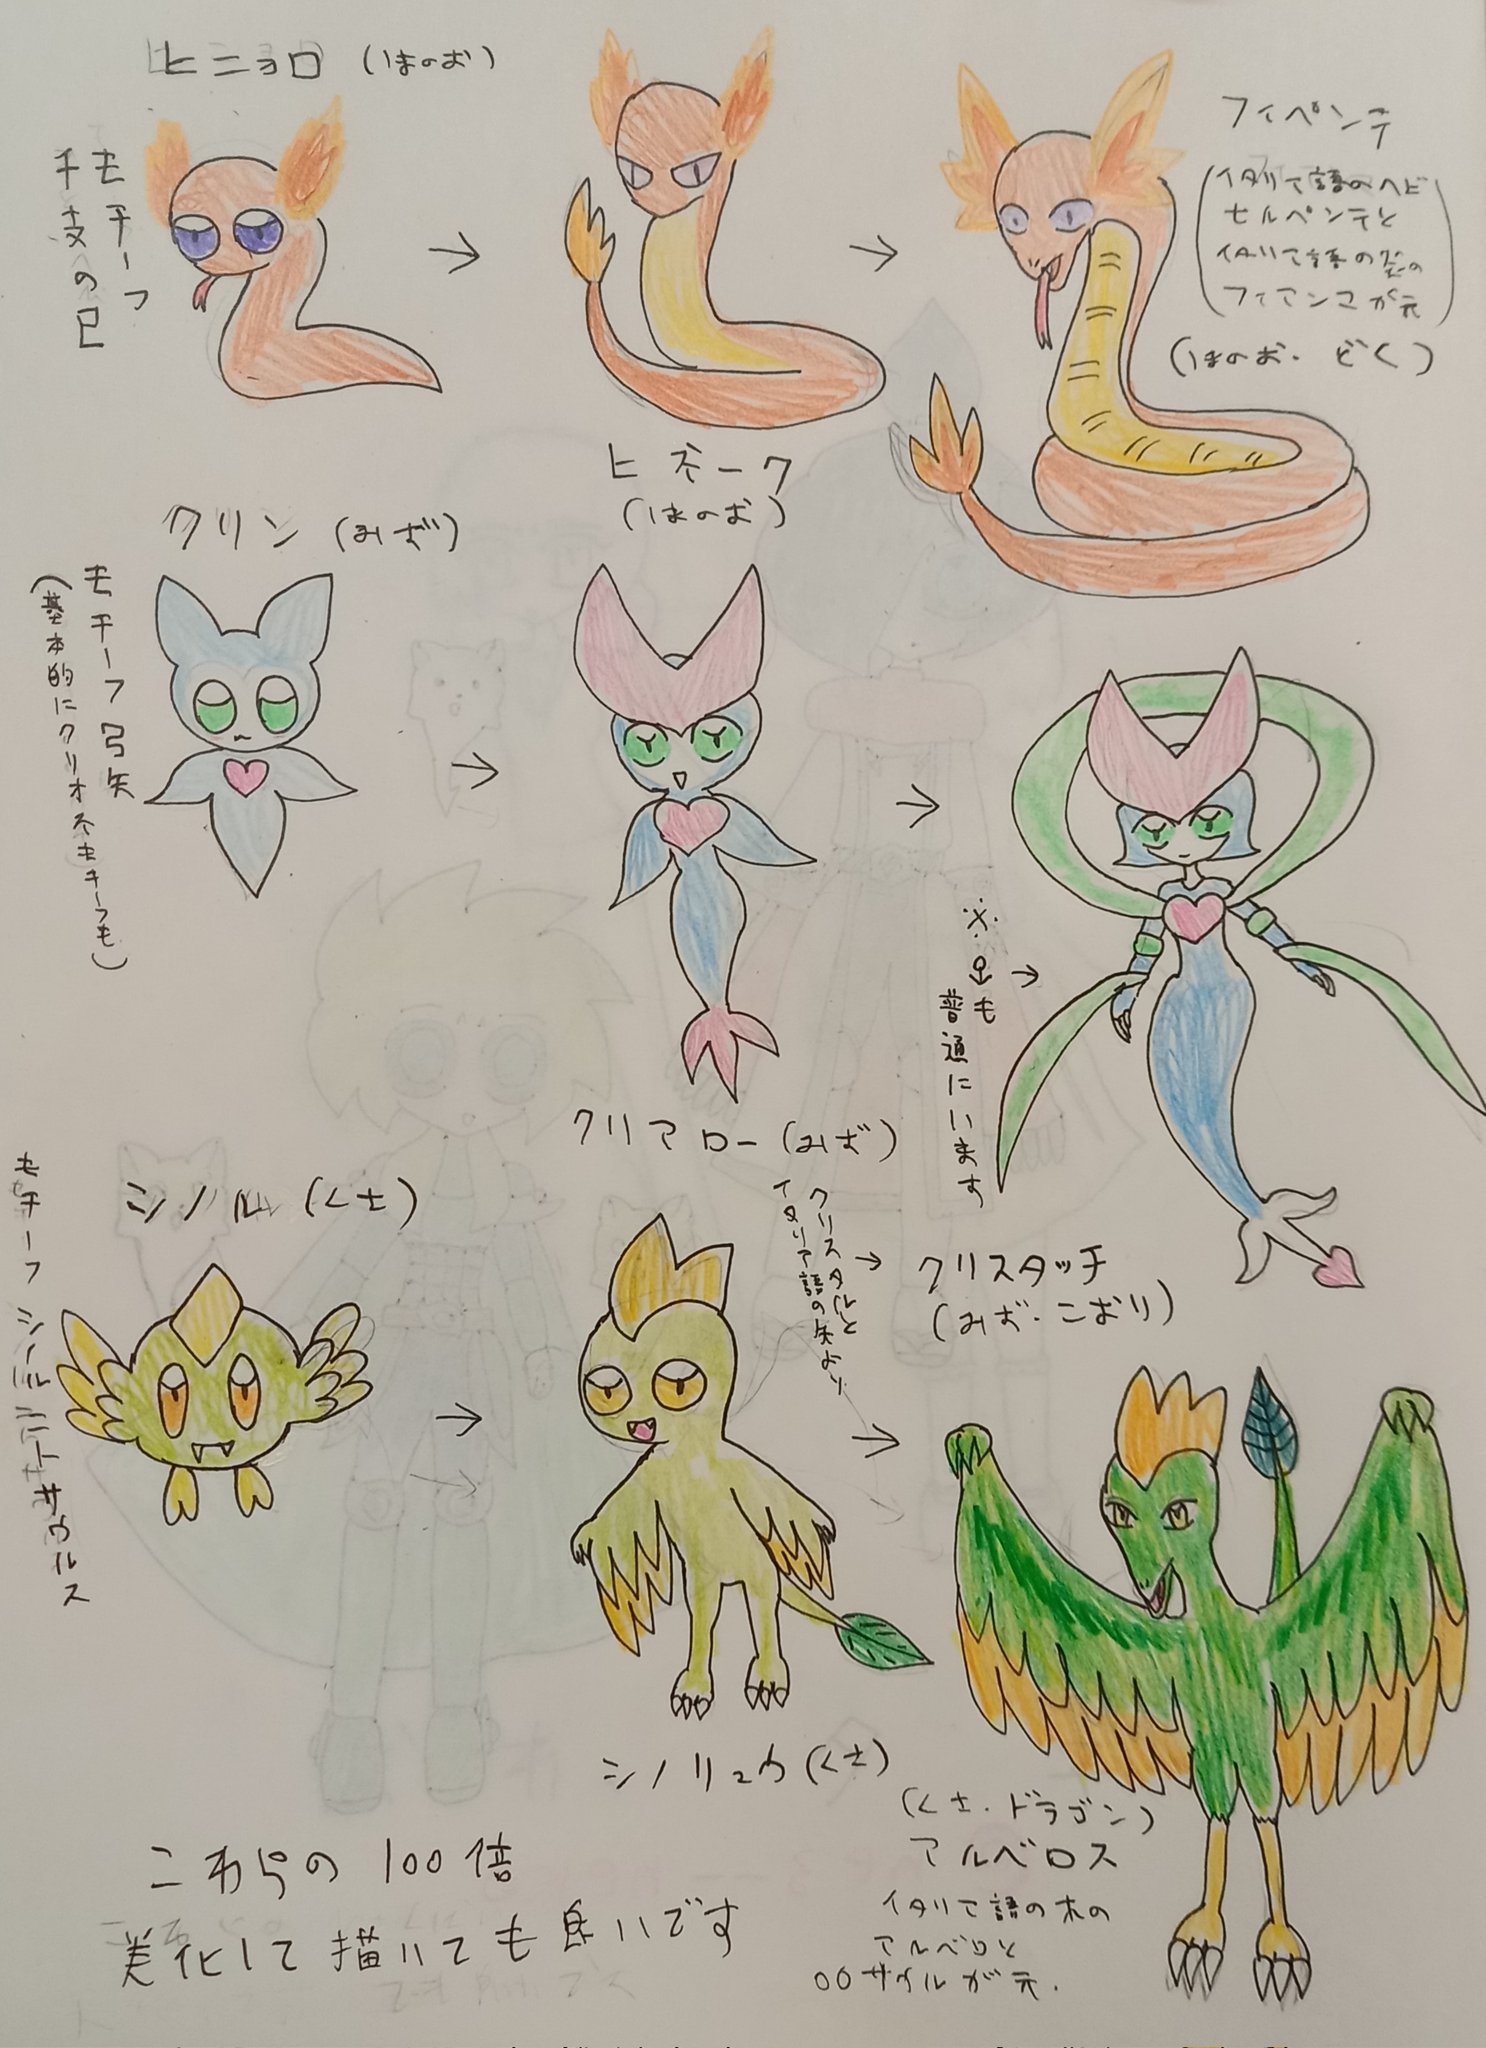 ヒニョロ (ほのお)
モチーフ
干支の巳
フィペンテ
(イタリア語のヘビ
セルペンテと
イタリア語の炎の
フィアンマが元)
(ほのお・どく)
ヒネーク
(ほのお)
クリン (みず)
モチーフ弓矢
(基本的にクリオネモチーフも)
クリアロー (みず)
※♂も
普通にいます
→
クリスタルと
イタリア語の矢より
→
クリスタッチ
(みず・こおり)
シノル (くさ)
モチーフ シノルニトサウルス
シノリュウ (くさ)
(くさ・ドラゴン)
アルベロス
イタリア語の木の
アルベロと
〇〇サウルが元.
これらの100倍
美化して描いても良いです